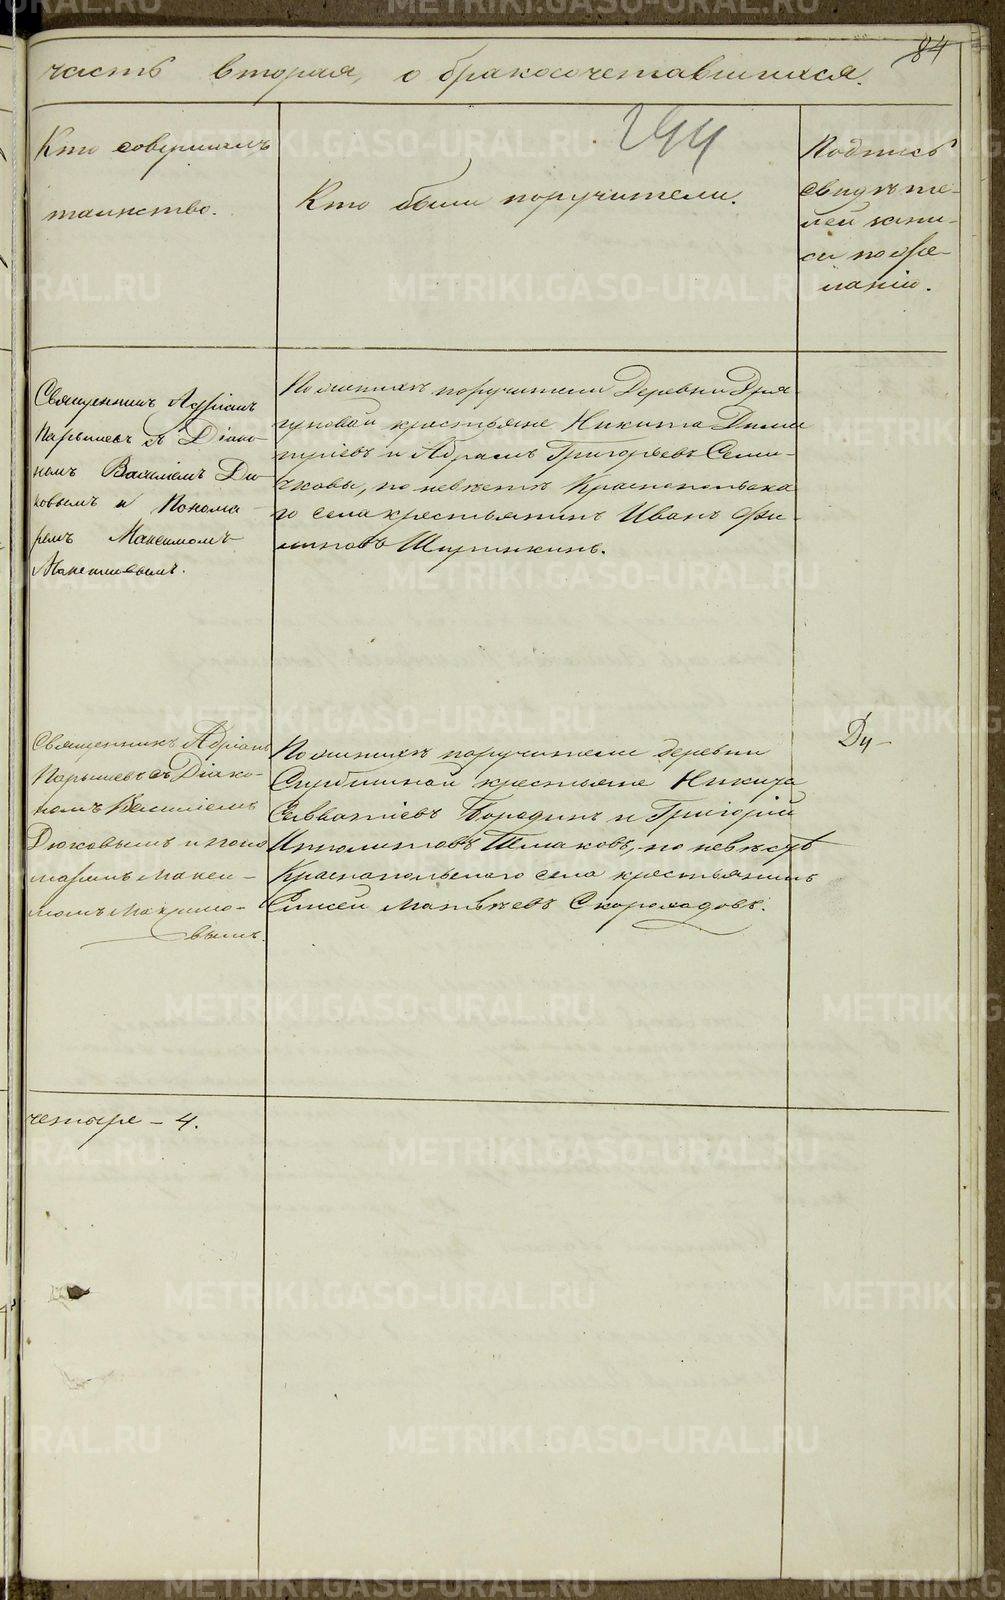 84
часть вторая, о бракосочетавшихся.
Кто совершалъ
таинство.
244
Кто были поручители.
Подпись
свидѣте-
лей запи-
си по же-
ланію.
Священникъ Адріанъ
Парышевъ съ Діако-
номъ Василіемъ Дю-
ковымъ и Понома-
ремъ Максимомъ
По женихѣ поручители Деревни
крестьяне Никита Дими-
тріевъ и Абрамъ Григорьевъ Семи-
чковы, по невѣстѣ Краснопольска-
го села крестьянинъ Иванъ Фи-
липовъ Ширинкинъ.
Священникъ Адріанъ
Парышевъ съ Діако-
номъ Василіемъ
Дюковымъ и поно-
маремъ Макси-
момъ
вымъ.
По женихѣ поручители деревни
крестьяне Никита
Савватіевъ Бородинъ и Григорій
Ипполитовъ Шмаковъ, по невѣстѣ
Краснопольского села крестьянинъ
Елисей Матвѣевъ Скороходовъ.
четыре – 4.
METRIKI.GASO-URAL.RU